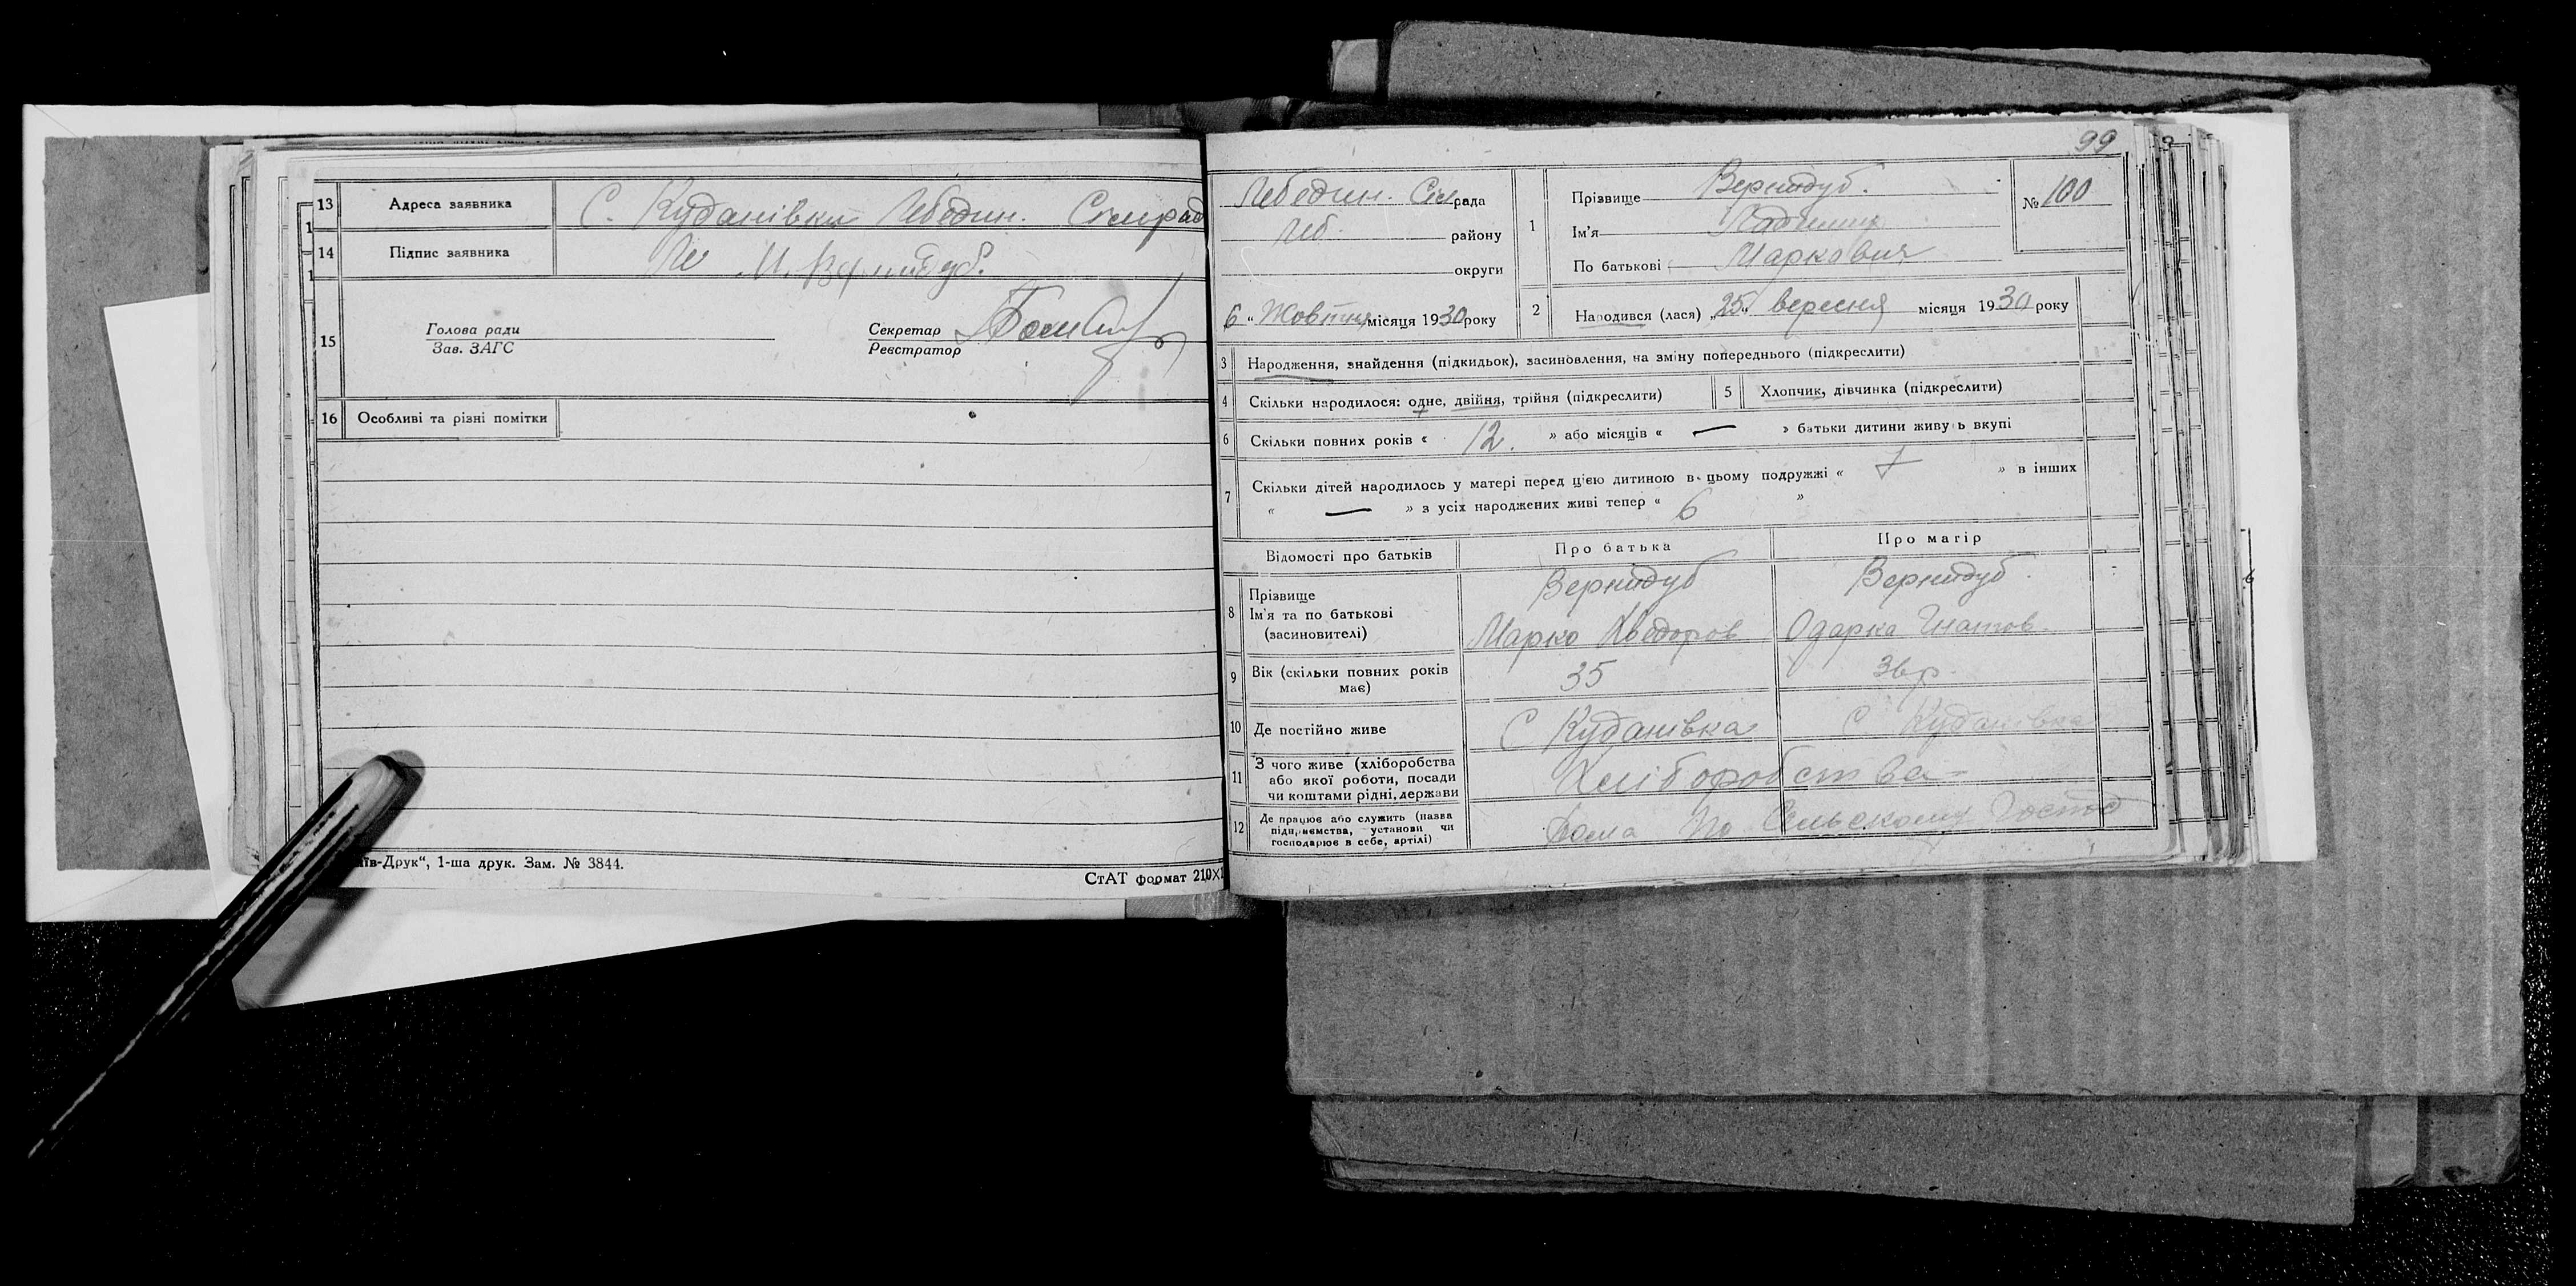 13 Адреса заявника С. Куданівка Лебедин. Сільрад
14 Підпис заявника М. Вернидуб.
15 Голова ради
Зав. ЗАГС
Секретар
Реєстратор
16 Особливі та різні помітки
їв-Друк“, 1-ша друк. Зам. № 3844.
СтАТ формат 210×1
99
Лебедин. Сіл рада
Леб. району
округи
6 “ Жовтня місяця 1930 року
1 Прізвище Вернидуб.
Ім'я
По батькові Маркович
№ 100
2 Народився (лася) „25“ вересня місяця 1930 року
3 Народження, знайдення (підкидьок), засиновлення, на зміну попереднього (підкреслити)
4 Скільки народилося: одне, двійня, трійня (підкреслити)
5 Хлопчик, дівчинка (підкреслити)
6 Скільки повних років « 12. » або місяців « — » батьки дитини живуть вкупі
7 Скільки дітей народилось у матері перед цією дитиною в цьому подружжі « 7 » в інших
« — » з усіх народжених живі тепер « 6 »
Відомості про батьків Про батька Про матір
8 Прізвище
Ім'я та по батькові
(засиновителі)
Вернидуб
Марко Хведоров
Вернидуб
Одарка Гнатов.
9 Вік (скільки повних років
має)
35
36 р.
10 Де постійно живе С Куданівка С Куданівка
11 З чого живе (хліборобства
або якої роботи, посади
чи коштами рідні, держави
Хліборобства
12 Де працює або служить (назва
підприємства, установи чи
господарює в себе, артілі)
Дома по Сельскому Господ